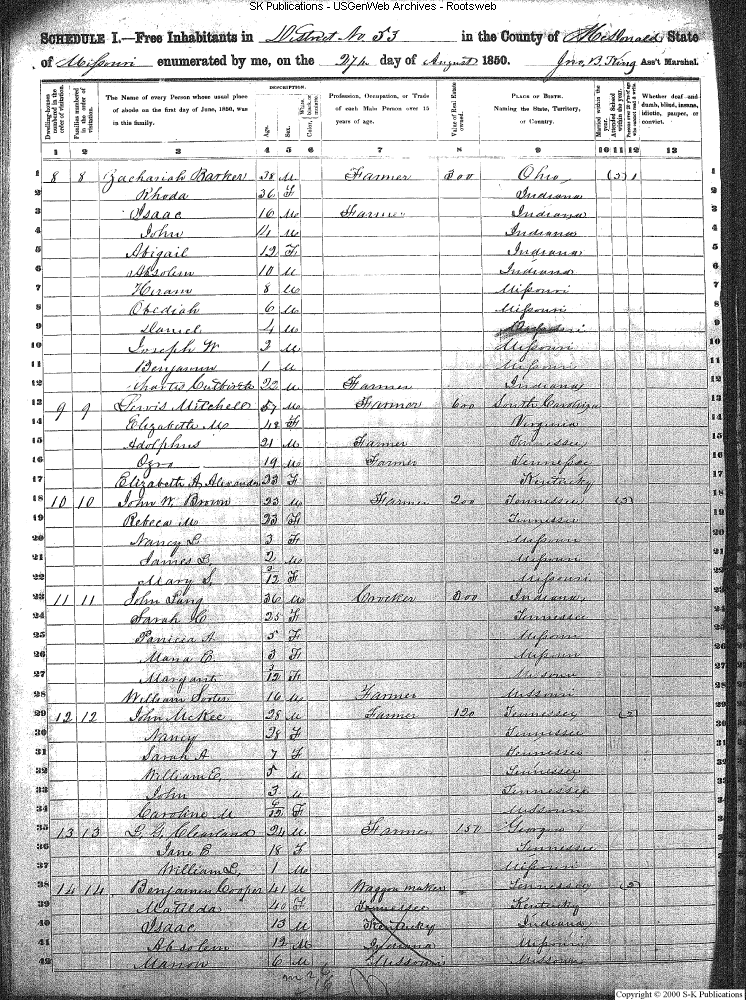 SK Publications - USGenWeb Archives - Rootsweb
SCHEDULE I.—Free Inhabitants in District No 53 in the County of McDonald State
of Missouri enumerated by me, on the 27th day of August 1850. Jno. B. King Ass't Marshal.
Dwelling-houses numbered in the order of visitation. Families numbered in the order of visitation. The Name of every Person whose usual place of abode on the first day of June, 1850, was in this family. DESCRIPTION. Age. Sex. Color, White, black, or mulatto. Profession, Occupation, or Trade of each Male Person over 15 years of age. Value of Real Estate owned. PLACE OF BIRTH. Naming the State, Territory, or Country. Married within the year. Attended School within the year. Persons over 20 y'rs of age who cannot read & write. Whether deaf and dumb, blind, insane, idiotic, pauper, or convict.
1 2 3 4 5 6 7 8 9 10 11 12 13
1 8 8 Zachariah Barker 38 M Farmer 300 Ohio (3) 1 1
2 Rhoda 36 F Indiana 2
3 Isaac 16 M Farmer Indiana 3
4 John 14 M Indiana 4
5 Abigail 12 F Indiana 5
6 Absolem 10 M Indiana 6
7 Hiram 8 M Missouri 7
8 Obediah 6 M Missouri 8
9 Daniel 4 M Missouri 9
10 Joseph W 2 M Missouri 10
11 Benjamin 1 M Missouri 11
12 Charles 22 M Farmer Indiana 12
13 9 9 Lewis Mitchell 57 M Farmer 600 South Carolina 13
14 Elizabeth M 48 F Virginia 14
15 Adolphus 21 M Farmer Tennessee 15
16 Ozro 19 M Farmer Tennessee 16
17 Elizabeth A Alexander 23 F Kentucky 17
18 10 10 John W. Brown 23 M Farmer 200 Tennessee (3) 18
19 Rebeca M 23 F Tennessee 19
20 Nancy L 3 F Missouri 20
21 James L 2 M Missouri 21
22 Mary S 3/12 F Missouri 22
23 11 11 John Lang 36 M 300 Indiana 23
24 Sarah C 25 F Tennessee 24
25 A 5 F Missouri 25
26 Maria E 3 F Missouri 26
27 Margaret 3/12 F Missouri 27
28 William 16 M Farmer Missouri 28
29 12 12 John McKee 28 M Farmer 120 Tennessee (3) 29
30 Nancy 28 F Tennessee 30
31 Sarah A 7 F Tennessee 31
32 William C, 5 M Tennessee 32
33 John 3 M Tennessee 33
34 Caroline M 6/12 F Missouri 34
35 13 13 L. G. Cleavland 24 M Farmer 150 Georgia 35
36 Jane E 18 F Tennessee 36
37 William L, 1 M Missouri 37
38 14 14 Benjamin Cooper 41 M Waggon maker Tennessee (3) 38
39 Matilda 40 F Tennessee Kentucky 39
40 Isaac 13 M Kentucky Indiana 40
41 Absolem 12 M Indiana Missouri 41
42 Marion 6 M Missouri Missouri 42
Copyright © 2000 S-K Publications